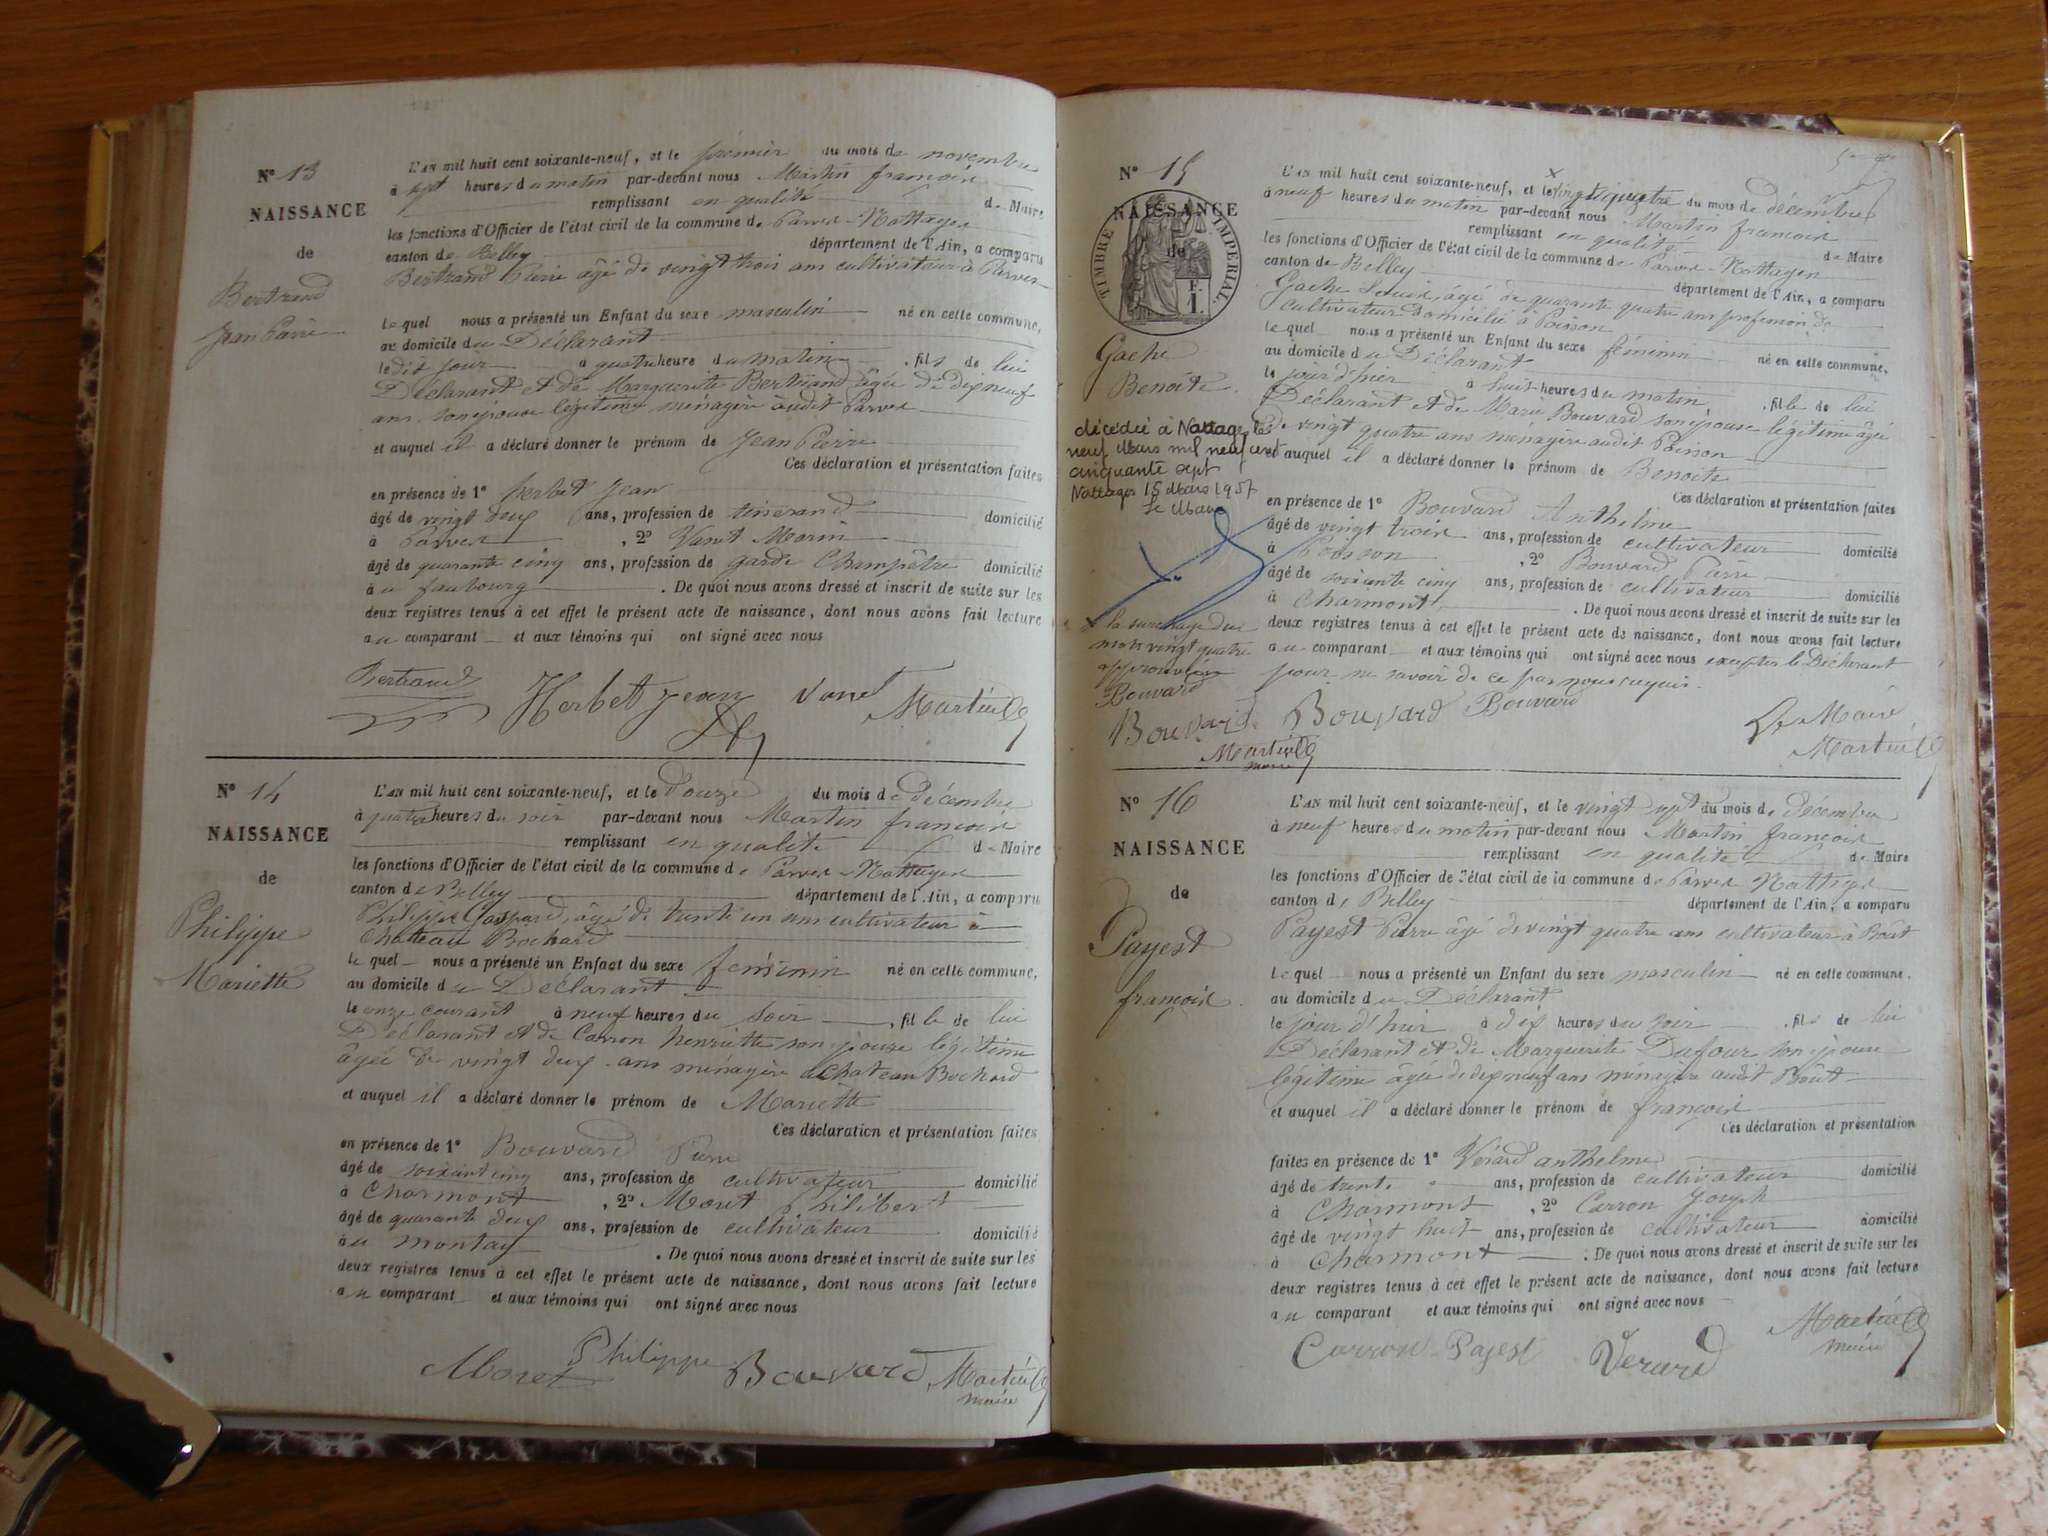 N° 13
NAISSANCE
de
Bertrand
Jean Pierre
L'AN mil huit cent soixante-neuf, et le premier du mois de novembre
à sept heures du matin par-devant nous Martin françois
remplissant en qualité de Maire
les fonctions d'Officier de l'état civil de la commune de Parves-Nattages
canton de Belley département de l'Ain, a comparu
Bertrand Pierre âgé de vingt trois ans cultivateur à Parves
lequel nous a présenté un Enfant du sexe masculin né en cette commune,
au domicile du Déclarant
le dit jour à quatre heure du matin, fils de lui
Déclarant et de Marguerite Bertrand âgée de dix neuf
ans, son épouse légitime ménagère audit Parves
et auquel il a déclaré donner le prénom de Jean Pierre
Ces déclaration et présentation faites
en présence de 1° herbet Jean
âgé de vingt deux ans, profession de tisserand domicilié
à Parves, 2° Vanet Marin
âgé de quarante cinq ans, profession de garde Champêtre domicilié
au faubourg. De quoi nous avons dressé et inscrit de suite sur les
deux registres tenus à cet effet le présent acte de naissance, dont nous avons fait lecture
au comparant et aux témoins qui ont signé avec nous
Bertrand Herbet jean Vanet Martin
N° 14
NAISSANCE
de
Philippe
Mariette
L'AN mil huit cent soixante-neuf, et le Douze du mois de décembre
à quatre heures du soir par-devant nous Martin françois
remplissant en qualité de Maire
les fonctions d'Officier de l'état civil de la commune de Parves-Nattages
canton de Belley département de l'Ain, a comparu
Philippe Gaspard, âgé de trente un ans cultivateur à
Chateau Bochard
lequel nous a présenté un Enfant du sexe féminin né en cette commune,
au domicile du Déclarant
le onze courant à neuf heures du soir, fille de lui
Déclarant et de Carron henriette son épouse légitime
âgée de vingt deux ans ménagère à Chateau Bochard
et auquel il a déclaré donner le prénom de Mariette
Ces déclaration et présentation faites
en présence de 1° Bouvard Pierre
âgé de soixante cinq ans, profession de cultivateur domicilié
à Charmont, 2° Moret Philibert
âgé de quarante deux ans, profession de cultivateur domicilié
au montay. De quoi nous avons dressé et inscrit de suite sur les
deux registres tenus à cet effet le présent acte de naissance, dont nous avons fait lecture
au comparant et aux témoins qui ont signé avec nous
Moret Philippe Bouvard Martin
maire
N° 15
NAISSANCE
de
TIMBRE IMPERIAL
F.
1.
Gache
Benoite
décédée à Nattages le
neuf Mars mil neuf cent
cinquante sept
Nattages 15 Mars 1957
Le Maire
x la surcharge des
mots vingt quatre
approuvée
Bouvard
Bouvard
Martin
maire
L'AN mil huit cent soixante-neuf, et le x vingt quatre du mois de décembre
à neuf heures du matin par-devant nous Martin françois
remplissant en qualité de Maire
les fonctions d'Officier de l'état civil de la commune de Parves-Nattages
canton de Belley département de l'Ain, a comparu
Gache Louis, âgé de quarante quatre ans profession de
cultivateur domicilié à Poisson
lequel nous a présenté un Enfant du sexe féminin né en cette commune,
au domicile du Déclarant
le jour d'hier à huit heures du matin, fille de lui
Déclarant et de Marie Bouvard son épouse légitime âgée
de vingt quatre ans ménagère audit Poisson
et auquel il a déclaré donner le prénom de Benoite
Ces déclaration et présentation faites
en présence de 1° Bouvard Anthelme
âgé de vingt trois ans, profession de cultivateur domicilié
à Poisson, 2° Bouvard Pierre
âgé de soixante cinq ans, profession de cultivateur domicilié
à Charmont. De quoi nous avons dressé et inscrit de suite sur les
deux registres tenus à cet effet le présent acte de naissance, dont nous avons fait lecture
au comparant et aux témoins qui ont signé avec nous excepter le Déclarant
pour ne savoir de ce par nous requis.
Bouvard Bouvard Le Maire
Martin
N° 16
NAISSANCE
de
Payest
françois
L'AN mil huit cent soixante-neuf, et le vingt sept du mois de décembre
à neuf heures du matin par-devant nous Martin françois
remplissant en qualité de Maire
les fonctions d'Officier de l'état civil de la commune de Parves Nattages
canton de Belley département de l'Ain, a comparu
Payest Pierre âgé de vingt quatre ans cultivateur à Bout
lequel nous a présenté un Enfant du sexe masculin né en cette commune,
au domicile du Déclarant
le jour d'hier à dix heures du soir, fils de lui
Déclarant et de Marguerite Dufour son épouse
légitime âgée de dix neuf ans ménagère audit Bout
et auquel il a déclaré donner le prénom de françois
Ces déclaration et présentation
faites en présence de 1° Vérard anthelme
âgé de trente ans, profession de cultivateur domicilié
à Charmont, 2° Carron Joseph
âgé de vingt huit ans, profession de cultivateur domicilié
à Charmont. De quoi nous avons dressé et inscrit de suite sur les
deux registres tenus à cet effet le présent acte de naissance, dont nous avons fait lecture
au comparant et aux témoins qui ont signé avec nous
Carron Payest Verard Martin
maire